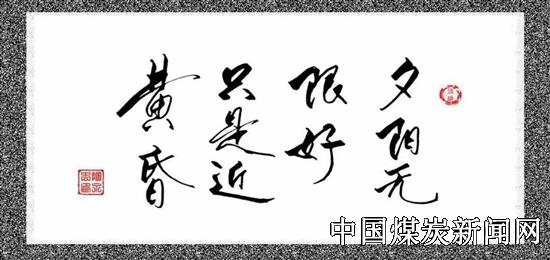 夕阳无
限好
只是近
黄昏
中国煤炭新闻网